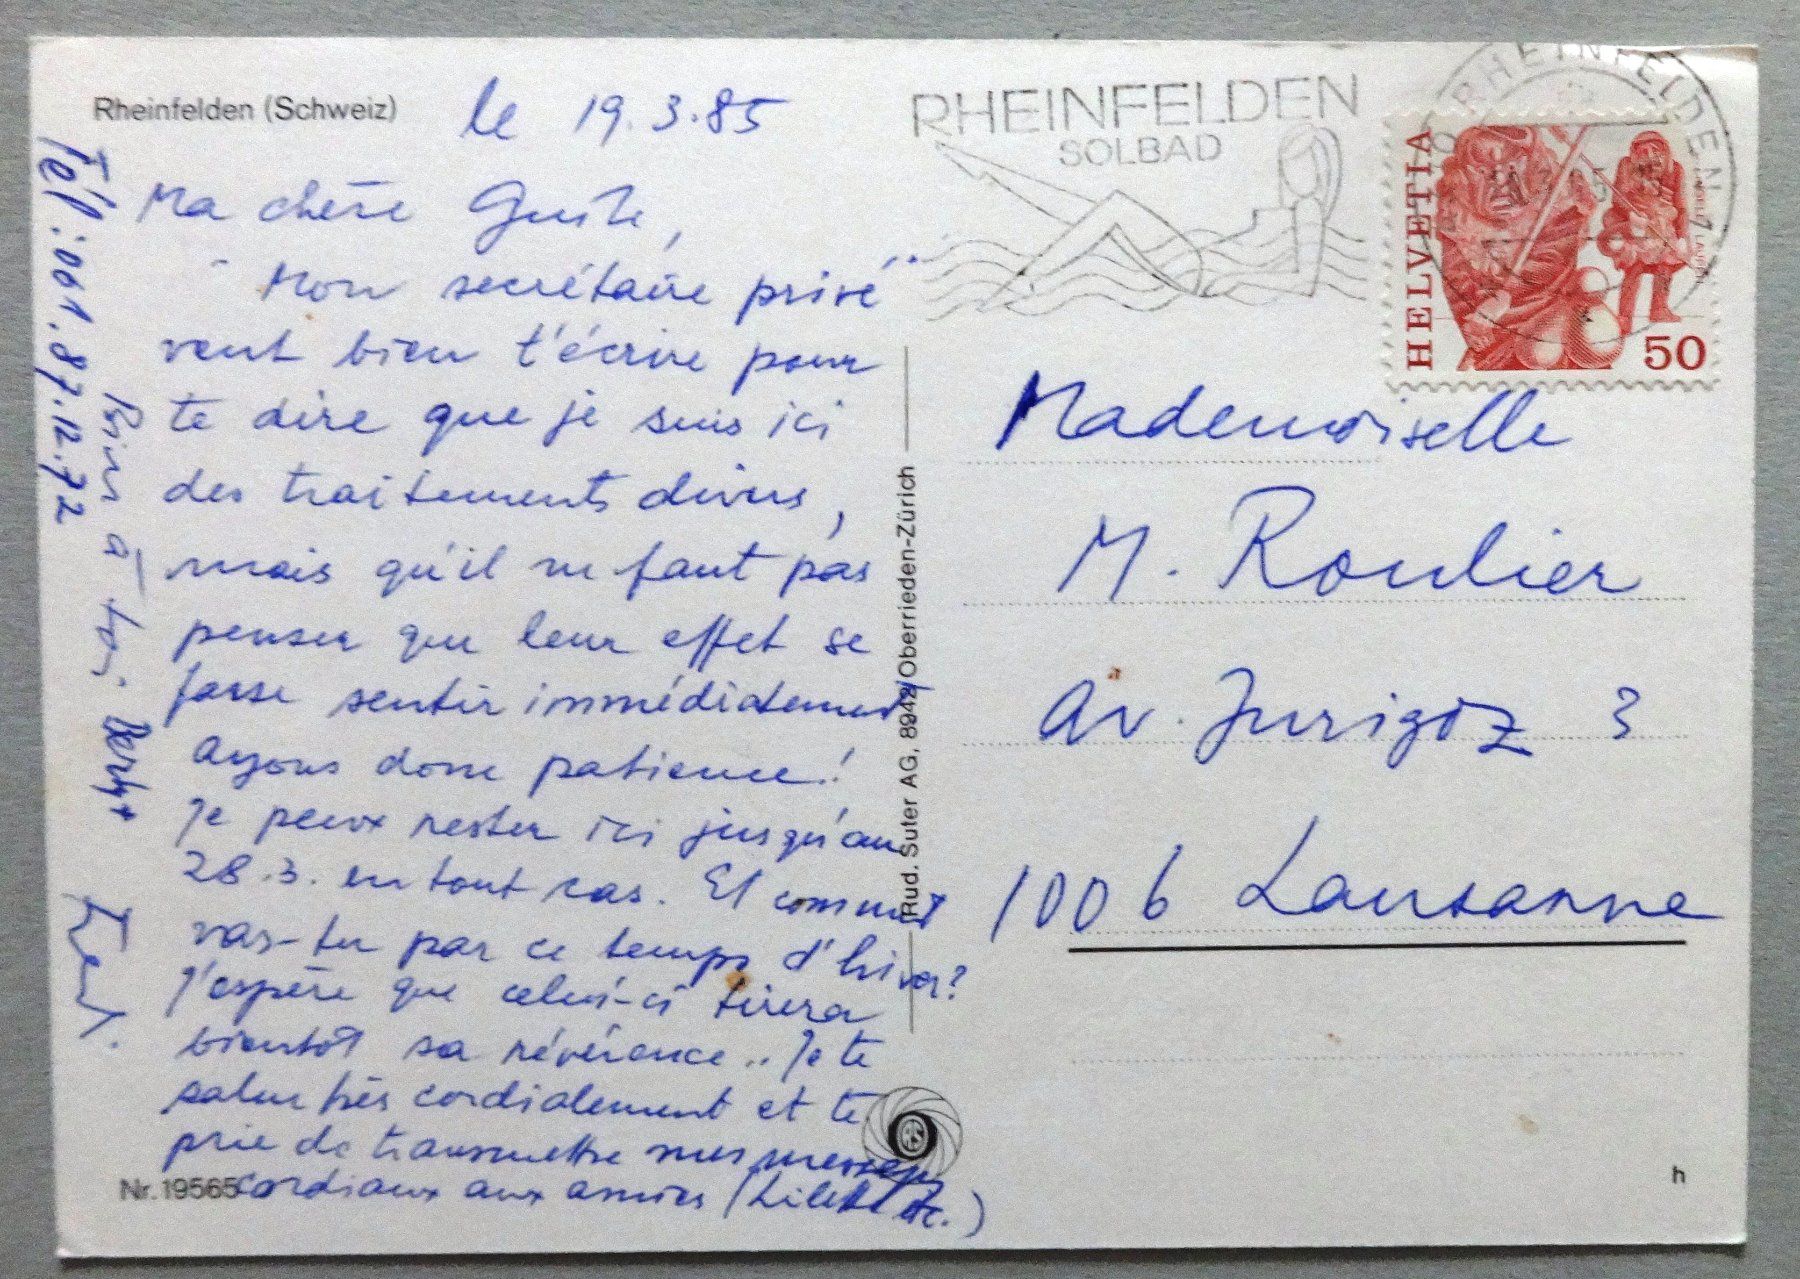 Rheinfelden (Schweiz)
le 19.3.85
Ma chère
"Mon secrétaire privé"
veut bien t'écrire pour
te dire que je suis ici
des traitements divers,
mais qu'il ne faut pas
penser que leur effet se
fasse sentir immédiatement
Ayons donc patience!
Je peux rester ici jusqu'au
28.3. en tout cas. Et comment
vas-tu par ce temps d'hiver?
J'espère que celui-ci tirera
bientôt sa révérence.. Je te
salue très cordialement et te
prie de transmettre mes messages
cordiaux aux amies (Lilette etc.)
Nr. 19565
Tél: 061.87.12.72
Bien à toi.
Rud. Suter AG, 8942 Oberrieden-Zürich
RHEINFELDEN
SOLBAD
RHEINFELDEN 1
HELVETIA
50
Mademoiselle
M. Roulier
Av. Jurigoz 3
1006 Lausanne
h